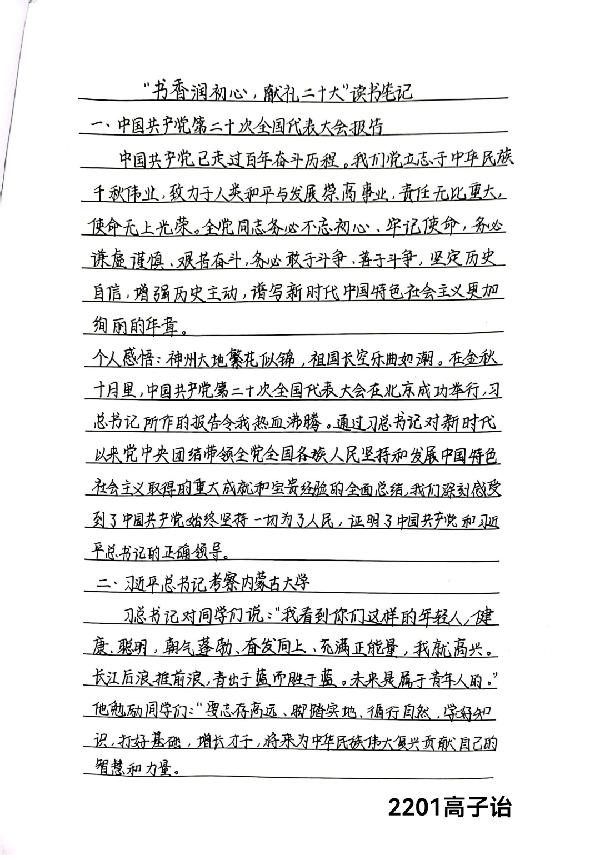 “书香润初心，献礼二十大”读书笔记
一、中国共产党第二十次全国代表大会报告
中国共产党已走过百年奋斗历程。我们党立志于中华民族
千秋伟业，致力于人类和平与发展崇高事业，责任无比重大，
使命无上光荣。全党同志务必不忘初心、牢记使命，务必
谦虚谨慎、艰苦奋斗，务必敢于斗争、善于斗争，坚定历史
自信，增强历史主动，谱写新时代中国特色社会主义更加
绚丽的华章。
个人感悟：神州大地繁花似锦，祖国长空乐曲如潮。在金秋
十月里，中国共产党第二十次全国代表大会在北京成功举行，习
总书记所作的报告令我热血沸腾。通过习总书记对新时代
以来党中央团结带领全党全国各族人民坚持和发展中国特色
社会主义取得的重大成就和宝贵经验的全面总结，我们深刻感受
到了中国共产党始终坚持一切为了人民，证明了中国共产党和习近
平总书记的正确领导。
二、习近平总书记考察内蒙古大学
习总书记对同学们说：“我看到你们这样的年轻人，健
康、聪明，朝气蓬勃、奋发向上、充满正能量，我就高兴。
长江后浪推前浪，青出于蓝而胜于蓝。未来是属于青年人的。”
他勉励同学们：“要志存高远、脚踏实地、循行自然，学好知
识，打好基础，增长才干，将来为中华民族伟大复兴贡献自己的
智慧和力量。
2201高子诒